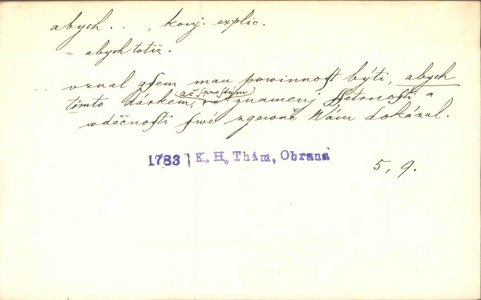 abych . . , konj. explic.
= abych totiž.
uznal gsem mau powinnost býti, abych
tímto dárkem, ač sprostým znamenj Ssetrnosti a
wděčnosti swé zgewné Wám dokázal.
1783 K. H. Thám, Obrana
5, 9.